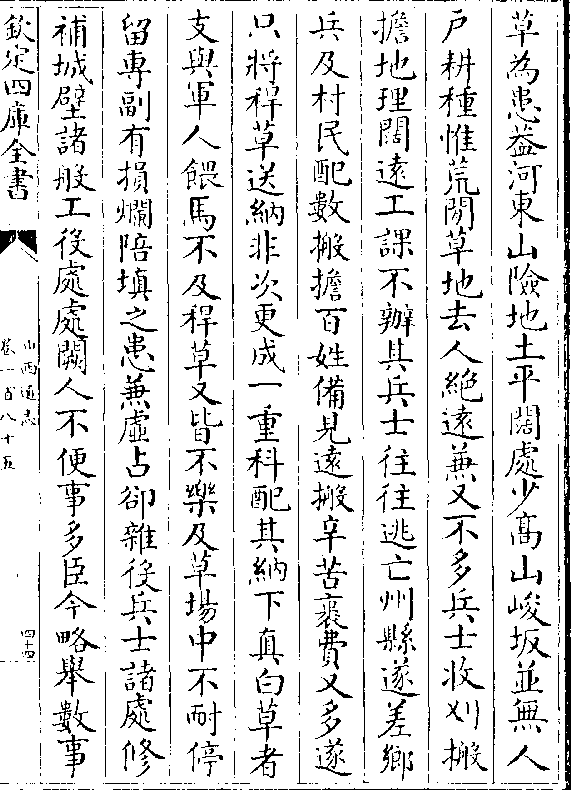 草為患葢河東山險地土平闊處少高山峻坂並無人
戸耕種惟荒閒草地去人絶遠兼又不多兵士收刈搬
擔地理闊遠工課不辦其兵士徃徃逃亡州縣遂差鄉
兵及村民配數搬擔百姓備見遠搬辛苦裹費又多遂
只將稈草送納非次更成一重科配其納下真白草者
支與軍人餵馬不及稈草又皆不樂及草場中不耐停
留專副有損爛陪填之患兼虛占卻雜役兵士諸處修
補城壁諸般工役處處闕人不便事多臣今略舉數事
欽定四庫全書
山西通志
卷一百八十五
四十四